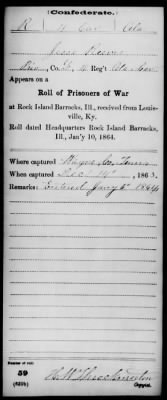 (Confederate.)
R 4 Cav Ala
Co. 4 Reg't Ala Cav
Appears on a
Roll of Prisoners of War
at Rock Island Barracks, Ill., received from Louis-
ville, Ky.
Roll dated Headquarters Rock Island Barracks,
Ill., Jan'y 10, 1864.
Where captured Wayne Co, Tenn
When captured Dec 14", 1863.
Remarks: Enlisted Jany 1864
Number of roll:
59
(639b) Copyist.